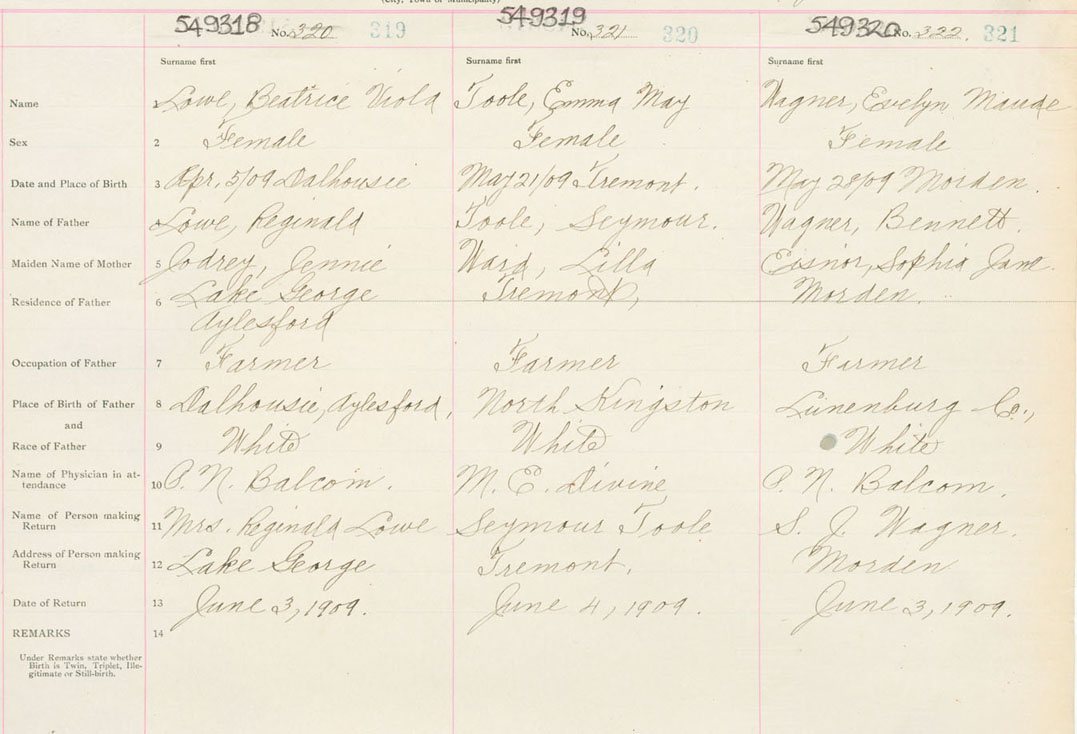 (City, Town or Municipality)
549318 No. 320 319
549319 No. 321 320
549320 No. 322. 321
Surname first Surname first Surname first
Name 1 Lowe, Beatrice Viola Toole, Emma May Wagner, Evelyn Maude
Sex 2 Female Female Female
Date and Place of Birth 3 Apr. 5/09 Dalhousie May 21/09 Tremont. May 28/09 Morden.
Name of Father 4 Lowe, Reginald Toole, Seymour. Wagner, Bennett.
Maiden Name of Mother 5 Jodrey, Jennie Ward, Lilla Eisnor, Sophia Jane.
Residence of Father 6 Lake George Tremont, Morden.
Aylesford
Occupation of Father 7 Farmer Farmer Farmer
Place of Birth of Father 8 Dalhousie, Aylesford, North Kingston Lunenburg Co.,
and
Race of Father 9 White White White
Name of Physician in at-
tendance 10 P. N. Balcom. M. E. Divine P. N. Balcom.
Name of Person making
Return 11 Mrs. Reginald Lowe Seymour Toole S. J. Wagner.
Address of Person making
Return 12 Lake George Tremont. Morden
Date of Return 13 June 3, 1909. June 4, 1909. June 3, 1909.
REMARKS 14
Under Remarks state whether
Birth is Twin, Triplet, Ille-
gitimate or Still-birth.